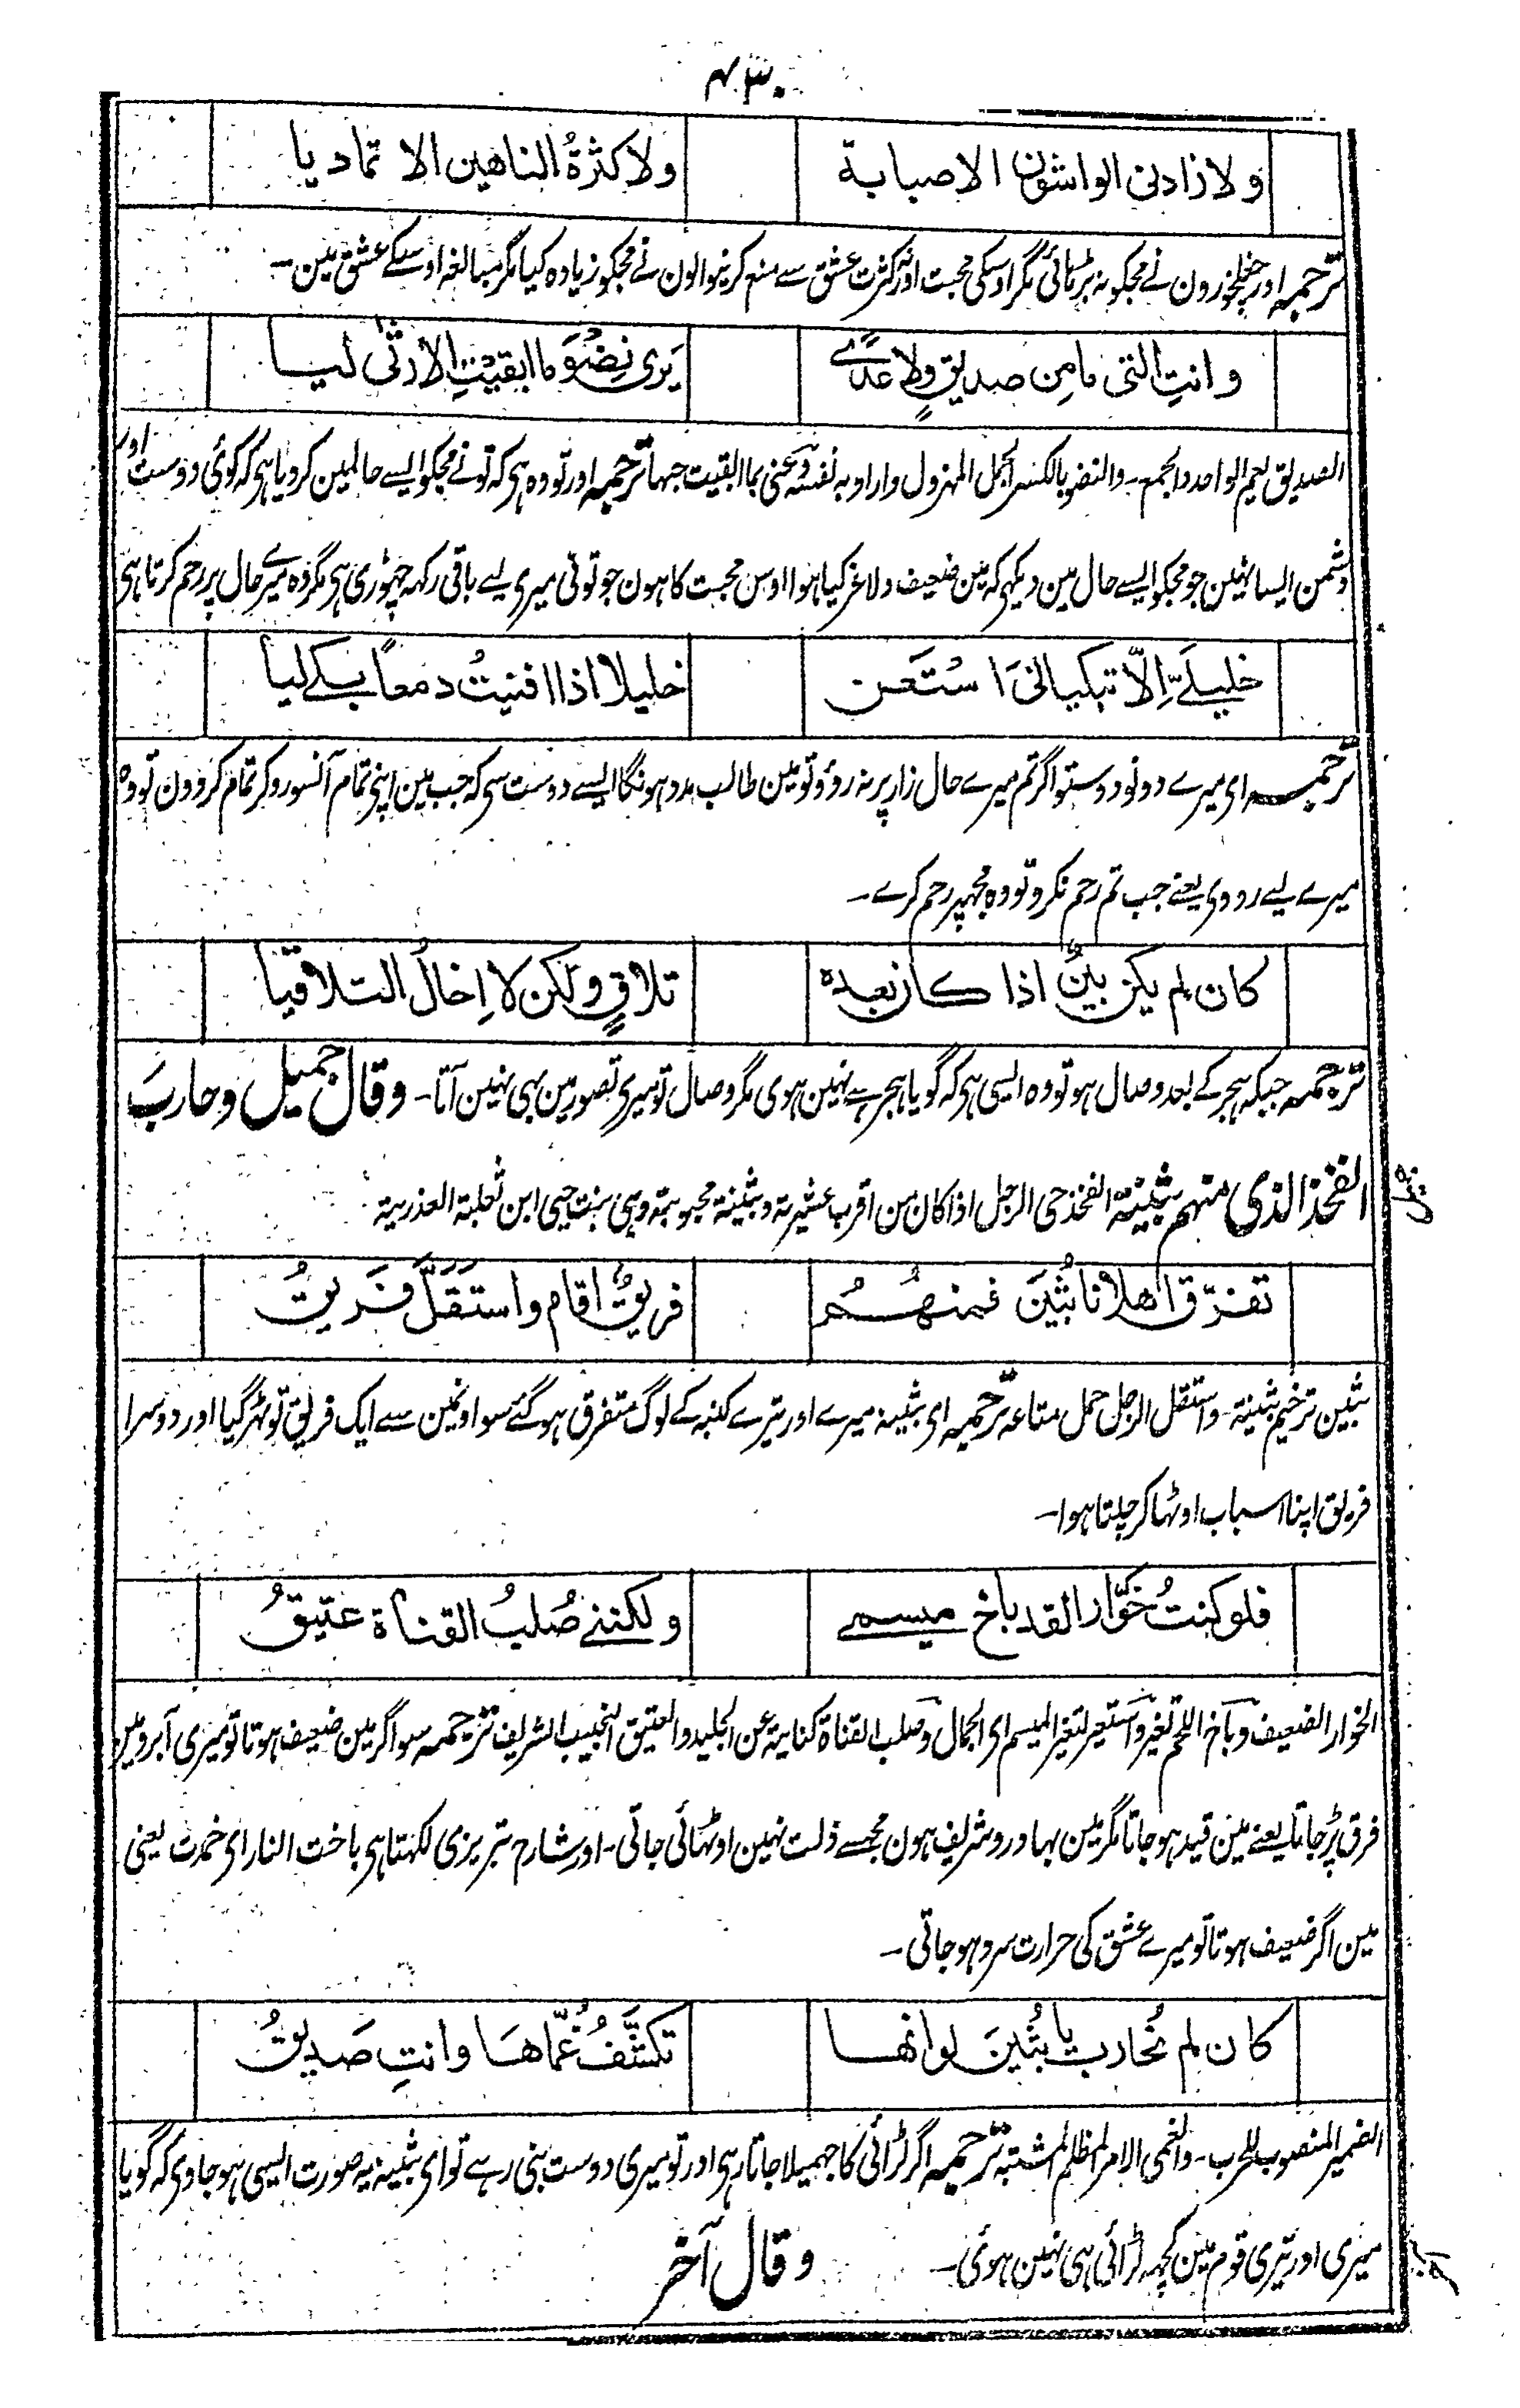 ۴۳۰
ولا زادنی الواشون الا صبابة ولا کثرةُ الناهین الا تمادیا
ترجمہ اور چغلخورون نے مجکو نہ بڑہائی مگر اوسکی محبت اور کثرت عشق سے منع کرنیوالون نے مجکو زیادہ کیا مگر مبالغہ اوسکے عشق مین۔
وانتِ التی مامِن صدیقٍ ولا عدًے یَری نِضْوَ ما ابقیْتِ الا رثٰی لیا
الصدیق یعم الواحد والجمع۔ والنضو بالکسر الجمل المہزول واراد بہ نفسہ وعنی بما ابقیت جہا ترجمہ اور تو وہ ہی کہ تونے مجکو ایسے حالمین کردیا ہی کہ کوئی دوست اور
دشمن ایسا نہین جو مجکو ایسے حال مین دیکہی کہ مین ضعیف ولاغر کیا ہوا اوس محبت کا ہون جو تونی میری لیے باقی رکہہ چہوڑی ہی مگر وہ میرے حال پر رحم کرتا ہی
خلیلَےَّ اِلّا تبکیا لیَ استَعن خلیلا اذا افنیتُ دمعاً بکے لیا
ترجمہ ای میرے دونو دوستو اگر تم میرے حال زار پر نہ روؤ تو مین طالب مدد ہونگا ایسے دوست سی کہ جب مین اپنی تمام آنسو روکر تمام کردون تو وہ
میرے لیے رودی یعنے جب تم رحم نکرو تو وہ مجہپر رحم کرے۔
کان لم یکن بینٌ اذا کان بعدہ تلاقٍ ولکن لا اِخالُ التلاقیا
ترجمہ جبکہ ہجر کے بعد وصال ہو تو وہ ایسی ہی کہ گویا ہجر ہے نہین ہوی مگر وصال تو میری تصور مین بہی نہین آتا۔ وقال جمیل وحاربَ
الفخذ الذی منہم بثینة الفخذ حی الرجل اذا کان من اقرب عشیرتہ وبثینة محبوبتہ وہی بنت حیی ابن ثعلبة العذریة
تفرّق اهلانا بُثَینَ فمنہُم فریقٌ اقام واستَقَلَّ فَریقُ
بثین ترخیم بثینة۔ واستقل الرجل حمل متاعہ ترجمہ ای بثینہ میرے اور تیرے کنبہ کے لوگ متفرق ہوگئے سو اونمین سے ایک فریق تو ٹہر گیا اور دوسرا
فریق اپنا اسباب اوٹہا کر چلتا ہوا۔
فلو کنتُ خوّارا لقد باخ میسمے ولکننے صُلبُ القناة عتیقُ
الخوار الضعیف وباخ اللحم تغیر واستعیر لتغیر المیسم ای الجمال وصلب القناة کنایة عن الجلید والعتیق النجیب الشریف ترجمہ سو اگر مین ضعیف ہوتا تو میری آبرو مین
فرق پڑجاتا یعنے مین قید ہوجاتا مگر مین بہادر وشریف ہون مجہسے ذلت نہین اوٹہائی جاتی۔ اور شارح تبریزی لکہتا ہی باخت النار ای خمدت یعنی
مین اگر ضعیف ہوتا تو میرے عشق کی حرارت سرد ہوجاتی۔
کان لم نُحارب یا بُثَینَ لو انها تکشَّفُ غُمّاهَا وانتِ صَدیقُ
الضمیر المنصوب للحرب۔ والغمی الامر المظلم المشتبہ ترجمہ اگر لڑائی کا جہمیلا جاتا رہی اور تو میری دوست بنی رہے تو ای بثینہ یہ صورت ایسی ہوجاوی کہ گویا
میری اور تیری قوم مین کچہہ لڑائی ہی نہین ہوئی۔ وقال آخر